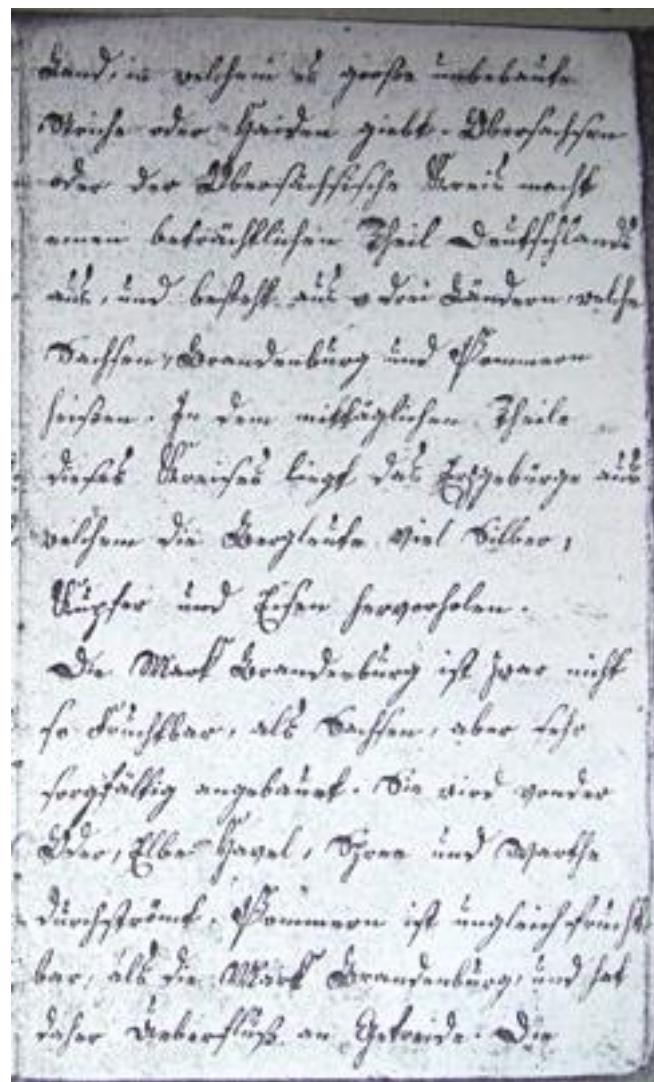 Land, in welchem es große unbebaute
Striche oder Haiden giebt. Obersachsen
oder der Obersächsische Kreis macht
einen beträchtlichen Theil Deutschlands
aus, und besteht aus drei Ländern welche
Sachsen, Brandenburg und Pommern
heißen. In dem mittäglichen Theile
dieses Kreises liegt das Erzgebürge aus
welchem die Bergleute viel Silber,
Kupfer und Eisen hervorholen.
Die Mark Brandenburg ist zwar nicht
so fruchtbar, als Sachsen, aber sehr
sorgfältig angebauet. Sie wird von der
Oder, Elbe Havel, Spree und Warthe
durchströmt. Pommern ist ungleich frucht
bar, als die Mark Brandenburg, und hat
daher Ueberfluß an Getreide. Die